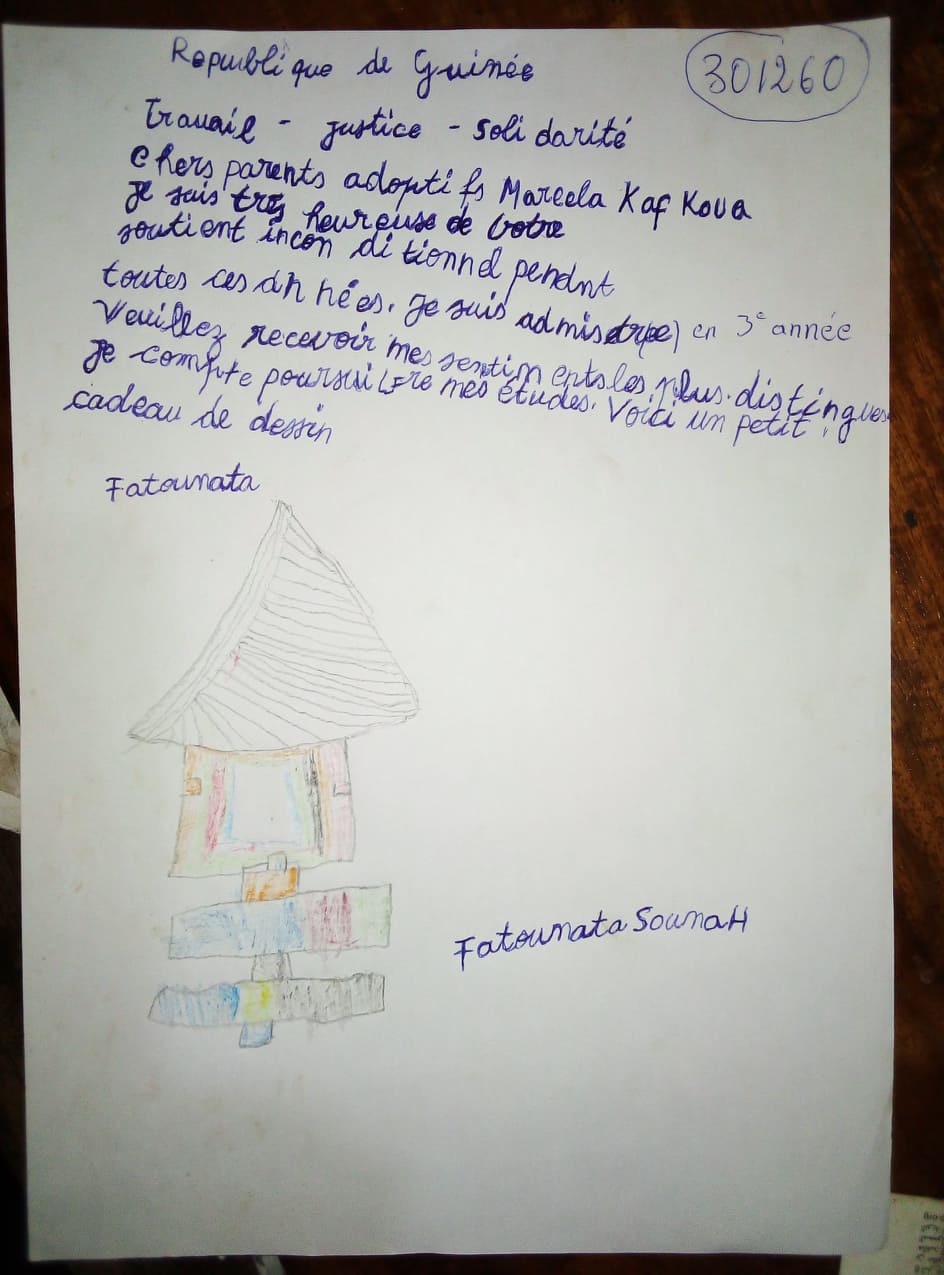 Republique de Guinée
301260
Travail - justice - solidarité
chers parents adoptifs Marcela Kaf Kova
je suis très heureuse de votre
soutient inconditionnel pendnt
toutes ces années. je suis admis(e) en 3e année
Veuillez recevoir mes sentiments les plus distingues
je compte poursuivre mes études. Voici un petit
cadeau de dessin
Fatoumata
Fatoumata SoumaH